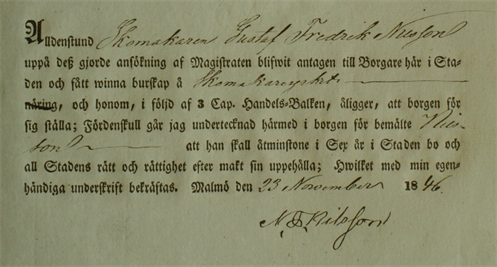 Alldenstund Skomakaren Gustaf Fredrik Nilsson
uppå deß gjorde ansökning af Magistraten blifwit antagen till Borgare här i Sta-
den och fått winna burskap å Skomakareyrket
näring, och honom, i följd af 3 Cap. Handels-Balken, åligger, att borgen för
sig ställa; Fördenskull går jag undertecknad härmed i borgen för bemälte Nils-
son att han skall åtminstone i Sex år i Staden bo och
all Stadens rätt och rättighet efter makt sin uppehålla; Hwilket med min egen-
händiga underskrift bekräftas. Malmö den 23 November 1846.
N. F. Nilsson